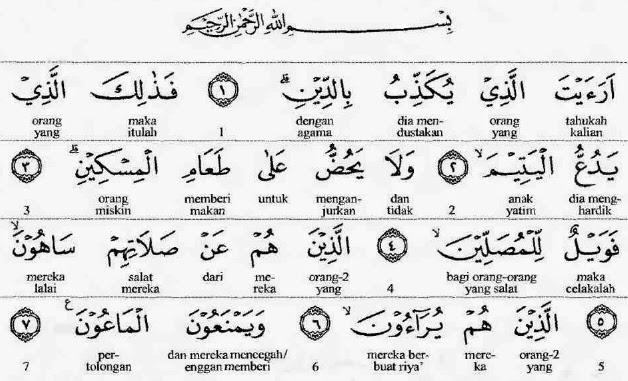 بِسْمِ اللهِ الرَّحْمٰنِ الرَّحِيْمِ
اَرَءَيْتَ الَّذِيْ يُكَذِّبُ بِالدِّيْنِۗ ١ فَذٰلِكَ الَّذِيْ
orang maka dengan dia men- orang tahukah
yang itulah 1 agama dustakan yang kalian
يَدُعُّ الْيَتِيْمَۙ ٢ وَلَا يَحُضُّ عَلٰى طَعَامِ الْمِسْكِيْنِۗ ٣
orang memberi untuk mengan- dan anak dia meng-
3 miskin makan jurkan tidak 2 yatim hardik
فَوَيْلٌ لِّلْمُصَلِّيْنَۙ ٤ الَّذِيْنَ هُمْ عَنْ صَلَاتِهِمْ سَاهُوْنَۙ
mereka salat dari me- orang-2 bagi orang-orang maka
lalai mereka reka yang 4 yang salat celakalah
٥ الَّذِيْنَ هُمْ يُرَآءُوْنَۙ ٦ وَيَمْنَعُوْنَ الْمَاعُوْنَ ع ٧
per- dan mereka mencegah/ mereka ber- mere- orang-2
7 tolongan enggan memberi 6 buat riya' ka yang 5